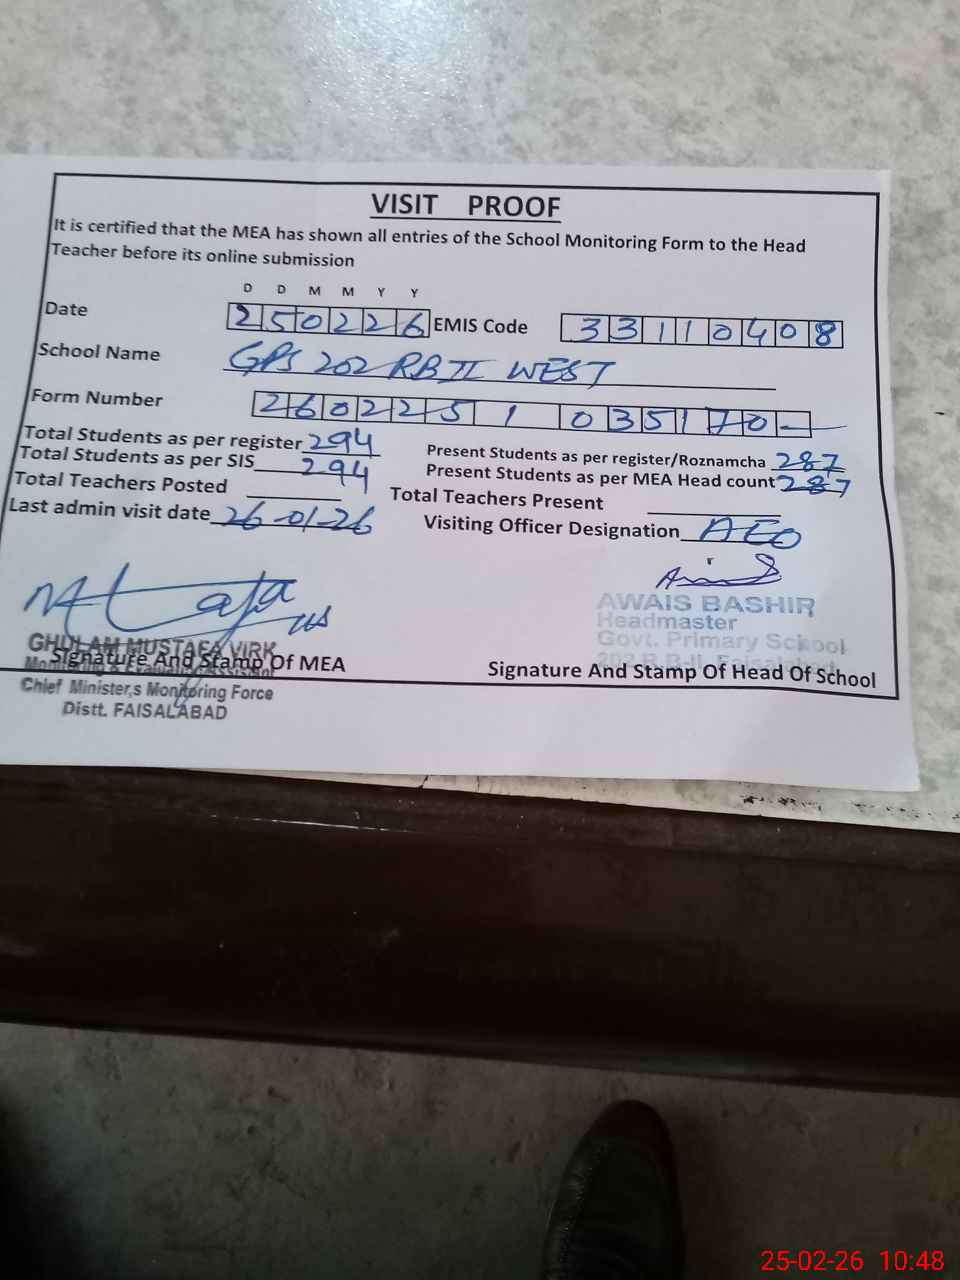 VISIT PROOF
It is certified that the MEA has shown all entries of the School Monitoring Form to the Head
Teacher before its online submission
D D M M Y Y
Date 250226 EMIS Code 33110408
School Name GPS 202 RB II WEST
Form Number 260225 1 035170-
Total Students as per register 294 Present Students as per register/Roznamcha 287
Total Students as per SIS 294 Present Students as per MEA Head count 287
Total Teachers Posted Total Teachers Present
Last admin visit date 26-01-26 Visiting Officer Designation AEO
AWAIS BASHIR
Headmaster
Govt. Primary School
202 R.B-II, Faisalabad
GHULAM MUSTAFA VIRK
Signature And Stamp Of MEA Signature And Stamp Of Head Of School
Monitoring & Evaluation Assistant
Chief Minister,s Monitoring Force
Distt. FAISALABAD
25-02-26 10:48